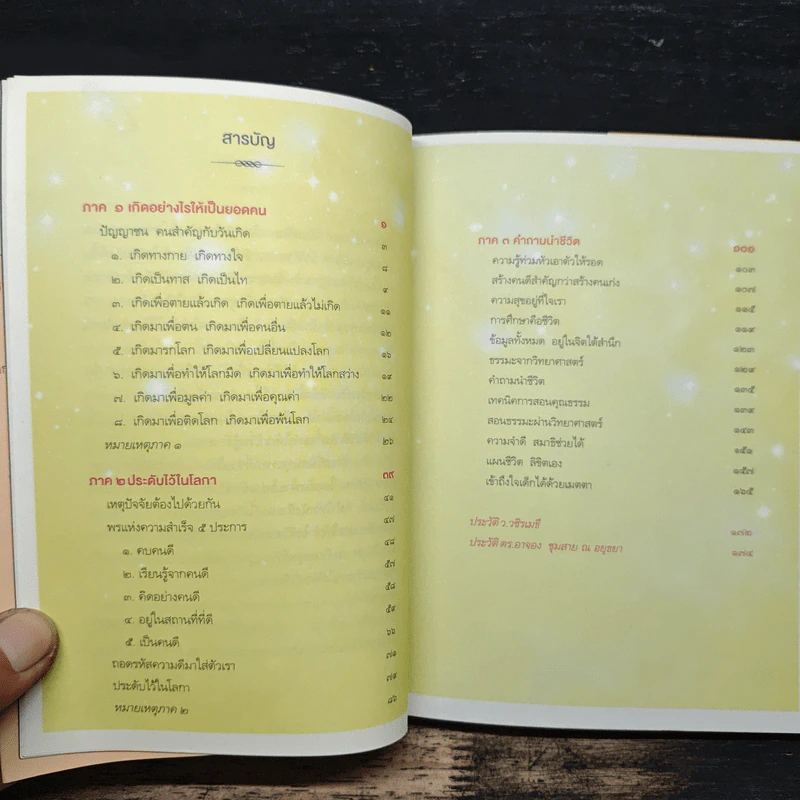 สารบัญ
ภาค ๑ เกิดอย่างไรให้เป็นยอดคน ๑
ปัญญาชน คนสำคัญกับวันเกิด ๓
๑. เกิดทางกาย เกิดทางใจ ๘
๒. เกิดเป็นทาส เกิดเป็นไท ๙
๓. เกิดเพื่อตายแล้วเกิด เกิดเพื่อตายแล้วไม่เกิด ๑๑
๔. เกิดมาเพื่อตน เกิดมาเพื่อคนอื่น ๑๒
๕. เกิดมารกโลก เกิดมาเพื่อเปลี่ยนแปลงโลก ๑๖
๖. เกิดมาเพื่อทำให้โลกมืด เกิดมาเพื่อทำให้โลกสว่าง ๑๙
๗. เกิดมาเพื่อมูลค่า เกิดมาเพื่อคุณค่า ๒๒
๘. เกิดมาเพื่อติดโลก เกิดมาเพื่อพ้นโลก ๒๔
หมายเหตุภาค ๑ ๒๖
ภาค ๒ ประดับไว้ในโลกา ๓๙
เหตุปัจจัยต้องไปด้วยกัน ๔๑
พรแห่งความสำเร็จ ๕ ประการ ๔๗
๑. คบคนดี ๔๘
๒. เรียนรู้จากคนดี ๕๗
๓. คิดอย่างคนดี ๕๘
๔. อยู่ในสถานที่ที่ดี ๕๙
๕. เป็นคนดี ๖๖
ถอดรหัสความดีมาใส่ตัวเรา ๗๑
ประดับไว้ในโลกา ๗๙
หมายเหตุภาค ๒ ๘๖
ภาค ๓ คำถามนำชีวิต ๑๐๑
ความรู้ท่วมหัวเอาตัวให้รอด ๑๐๓
สร้างคนดีสำคัญกว่าสร้างคนเก่ง ๑๐๗
ความสุขอยู่ที่ใจเรา ๑๑๕
การศึกษาคือชีวิต ๑๑๙
ข้อมูลทั้งหมด อยู่ในจิตใต้สำนึก ๑๒๓
ธรรมะจากวิทยาศาสตร์ ๑๒๙
คำถามนำชีวิต ๑๓๕
เทคนิคการสอนคุณธรรม ๑๓๙
สอนธรรมะผ่านวิทยาศาสตร์ ๑๔๓
ความจำดี สมาธิช่วยได้ ๑๕๑
แผนชีวิต ลิขิตเอง ๑๕๗
เข้าถึงใจเด็กได้ด้วยเมตตา ๑๖๕
ประวัติ ว.วชิรเมธี ๑๗๒
ประวัติ ดร.อาจอง ชุมสาย ณ อยุธยา ๑๗๔